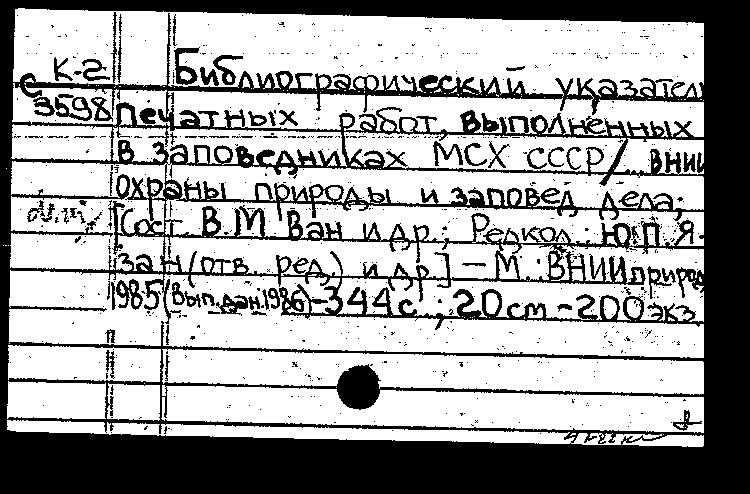 К-2
С 3598
Библиографический указател
печатных работ, выполненных
в заповедниках МСХ СССР/ ВНИИ
охраны природы и заповед. дела;
[Сост. В.М. Ван и др.; Редкол.: Ю.П. Я-
зан (отв. ред.) и др.] — М.: ВНИИприрод
1985 (Вып. дан. 1986)-344с.; 20см-200экз